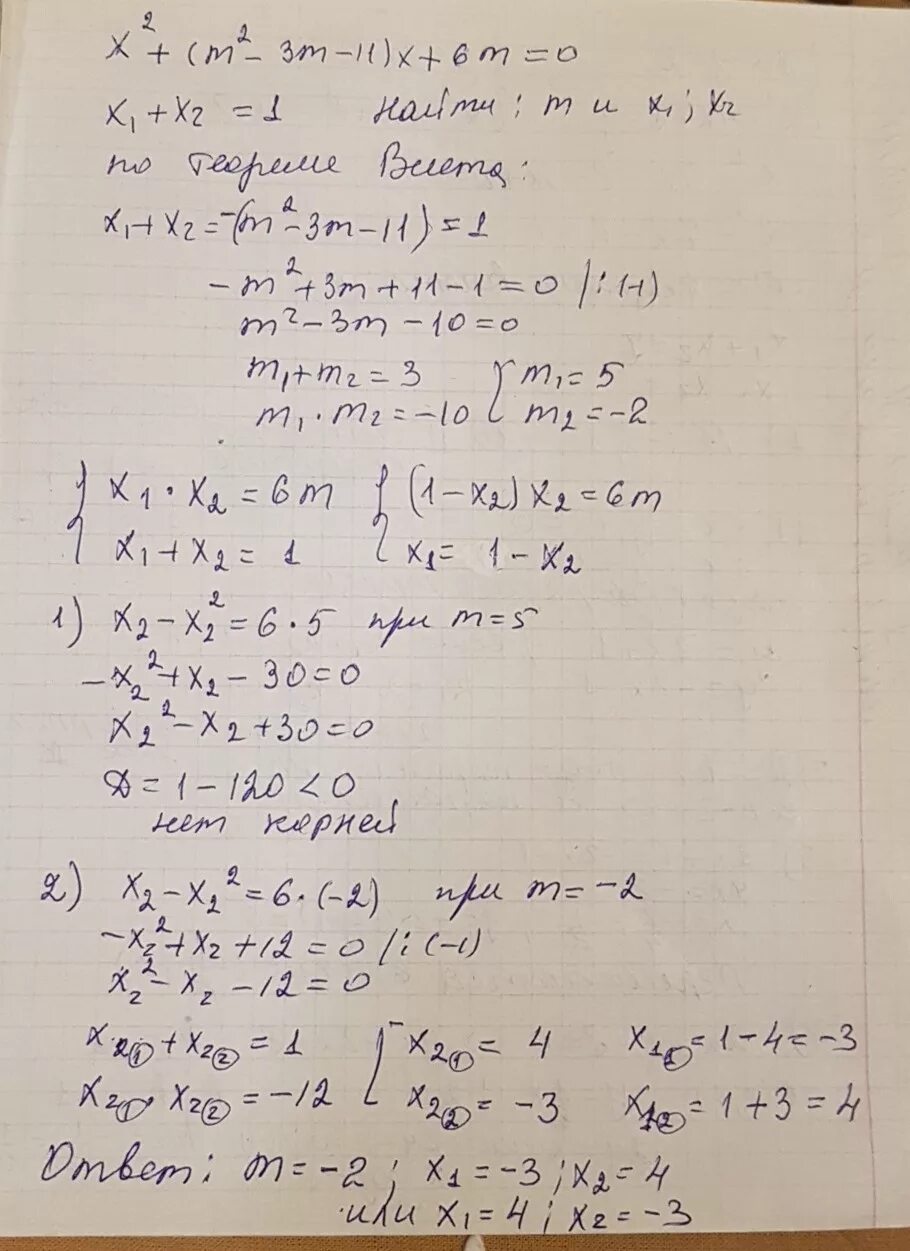 x² + (m² - 3m - 11)x + 6m = 0
x₁ + x₂ = 1 найти: m и x₁; x₂
по теореме Виета:
x₁ + x₂ = -(m² - 3m - 11) = 1
-m² + 3m + 11 - 1 = 0 /:(-1)
m² - 3m - 10 = 0
m₁ + m₂ = 3 [ m₁ = 5
m₁ · m₂ = -10 m₂ = -2
{ x₁ · x₂ = 6m { (1 - x₂) x₂ = 6m
x₁ + x₂ = 1 x₁ = 1 - x₂
1) x₂ - x₂² = 6 · 5 при m = 5
-x₂² + x₂ - 30 = 0
x₂² - x₂ + 30 = 0
D = 1 - 120 < 0
нет корней
2) x₂ - x₂² = 6 · (-2) при m = -2
-x₂² + x₂ + 12 = 0 /:(-1)
x₂² - x₂ - 12 = 0
x₂① + x₂② = 1 [ x₂① = 4 x₁① = 1 - 4 = -3
x₂① · x₂② = -12 x₂② = -3 x₁② = 1 + 3 = 4
Ответ: m = -2; x₁ = -3; x₂ = 4
или x₁ = 4; x₂ = -3